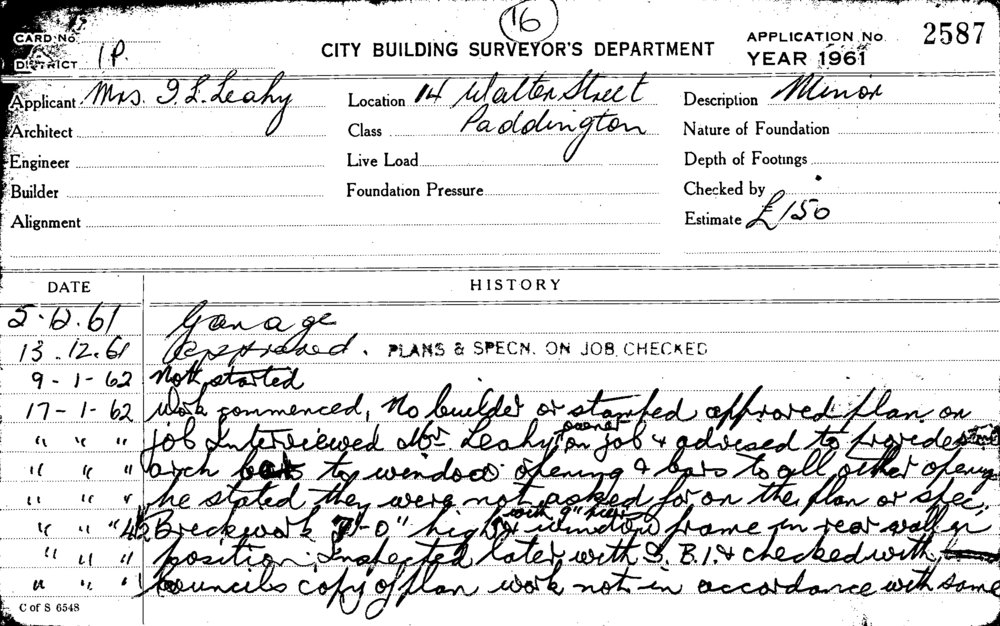 16
CARD No.
DISTRICT 1P.
CITY BUILDING SURVEYOR'S DEPARTMENT
APPLICATION No. 2587
YEAR 1961
Applicant Mrs. I. L. Leahy
Location 14 Walter Street
Description Minor
Architect
Class Paddington
Nature of Foundation
Engineer
Live Load
Depth of Footings
Builder
Foundation Pressure
Checked by
Alignment
Estimate £150
DATE HISTORY
5.12.61 Garage
13.12.61 Approved. PLANS & SPECN. ON JOB CHECKED
9-1-62 Not started
17-1-62 Work commenced, No builder or stamped approved plan on
" " " job Interviewed Mr Leahy owner on job & advised to provide
" " " arch bars to window opening & bars to all other opening
" " " he stated they were not asked for on the plan or spec.
" " " 4½ Brickwork 7'-0" high with 9" piers & window frame in rear wall in
" " " position. Inspected later with S. B. I. & checked with
" " " Councils copy of plan work not in accordance with same
C of S 6548